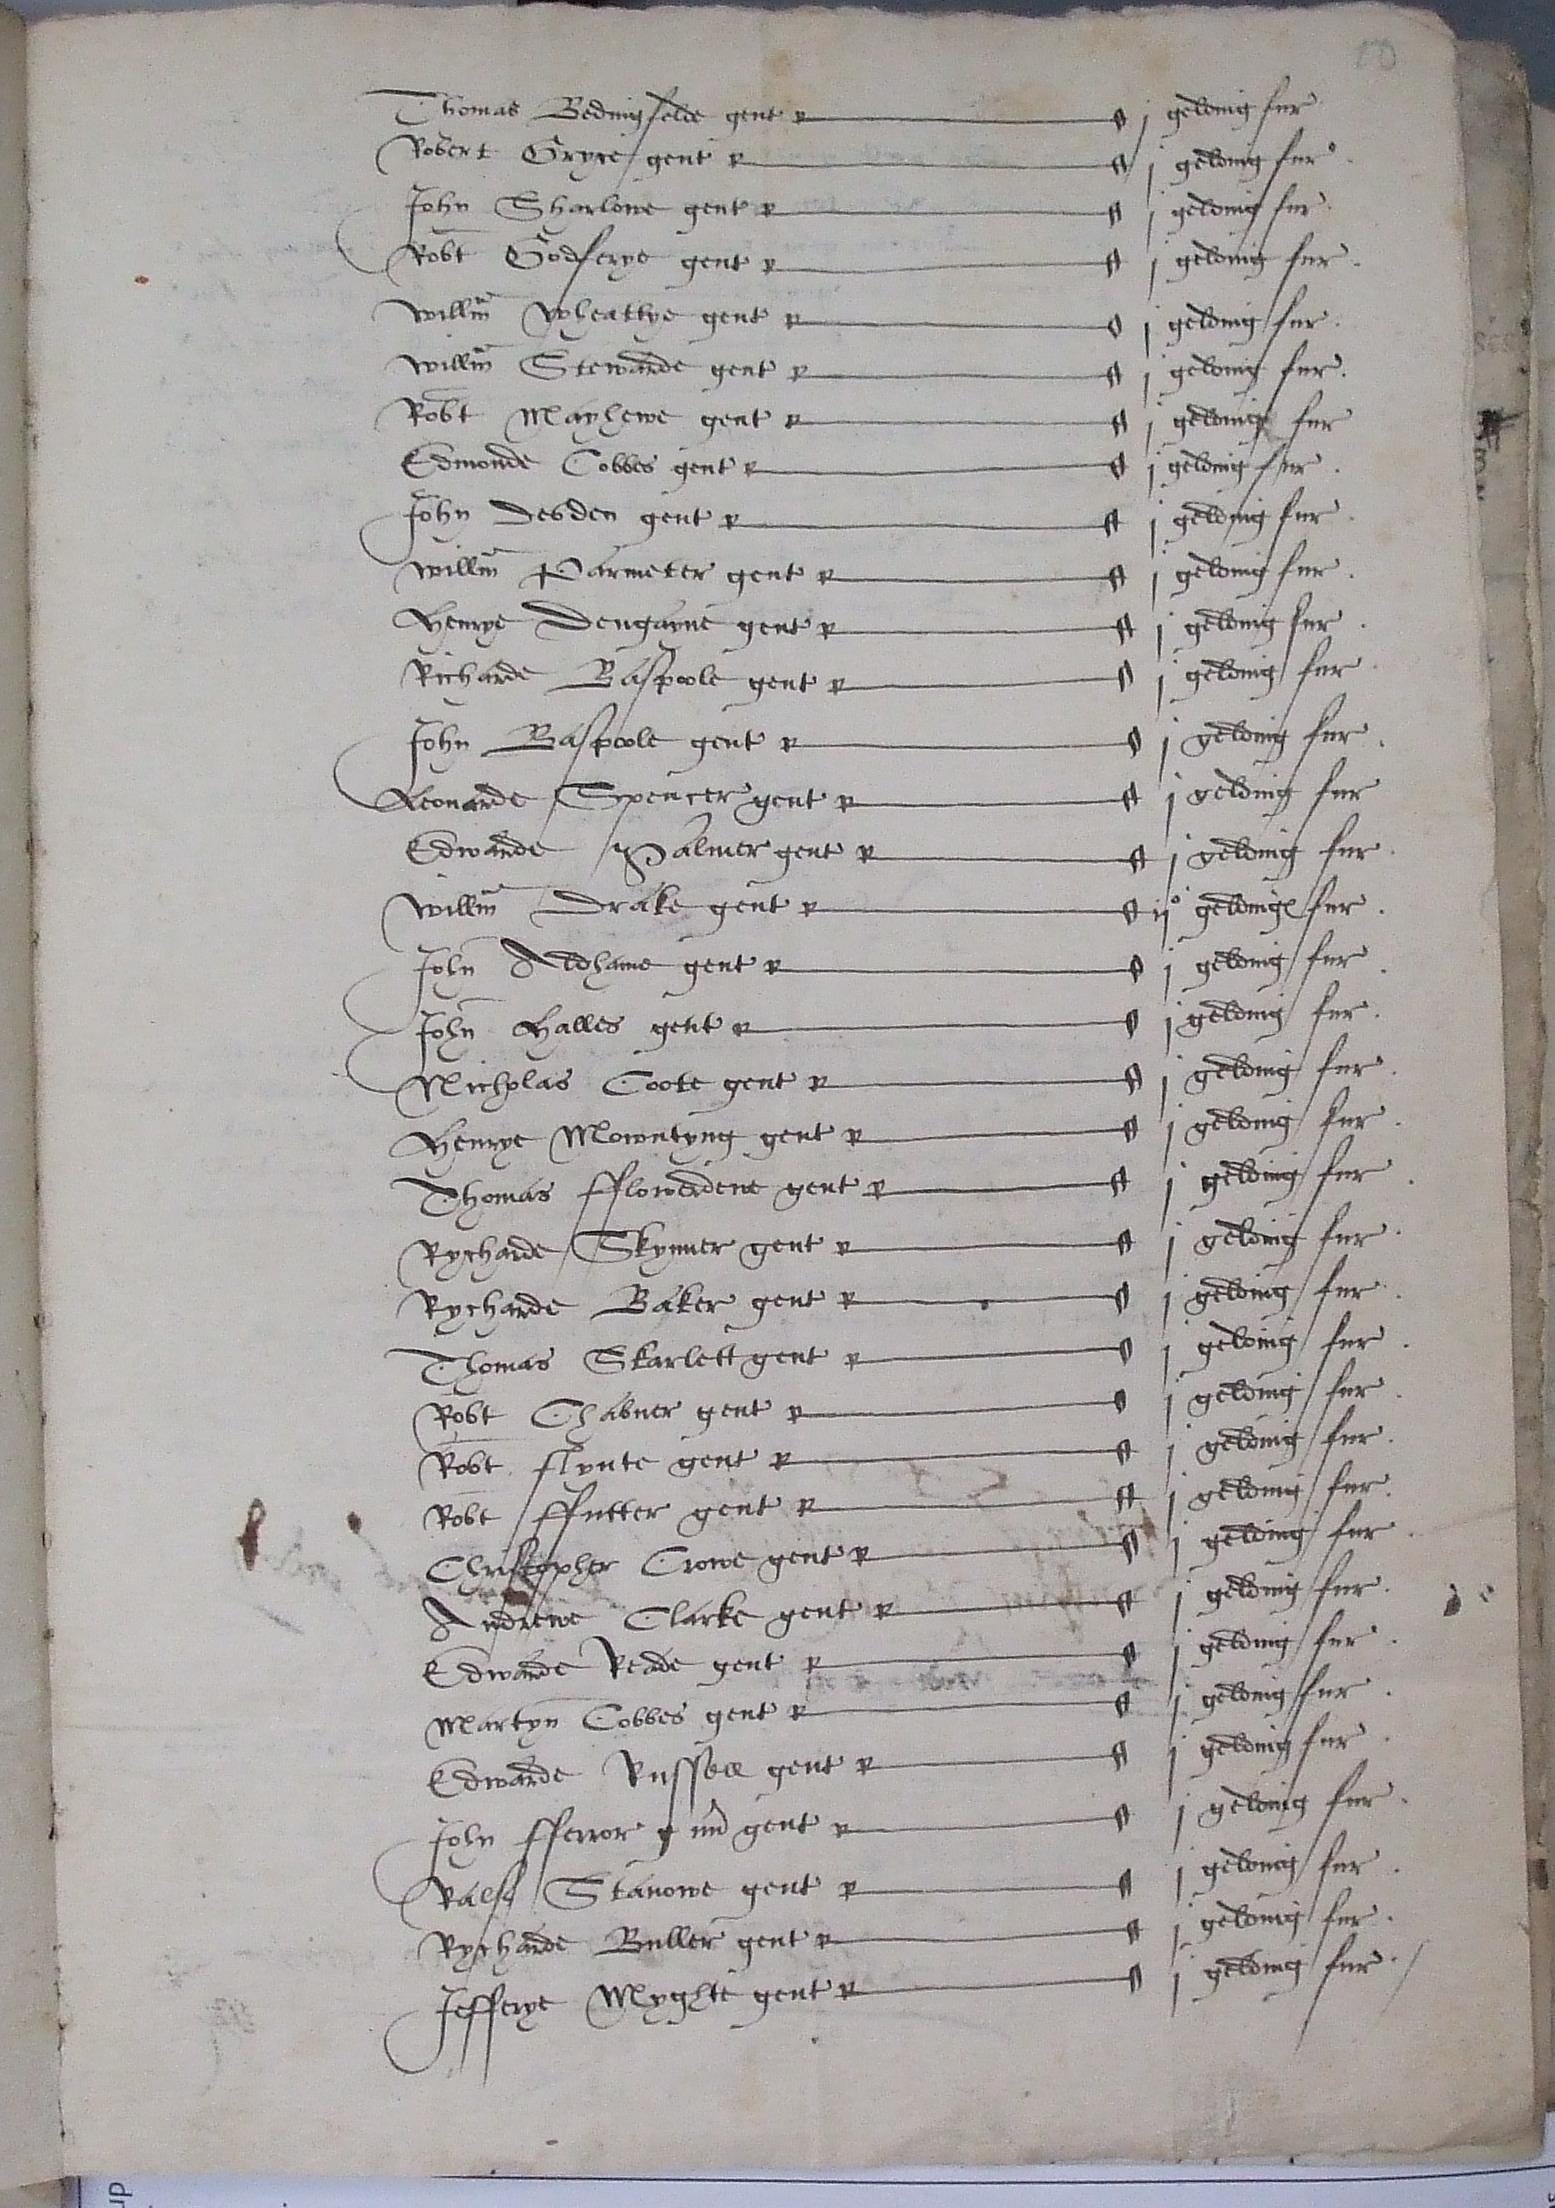 Thomas Bedingfelde gent j geldinig fur
Robert Gryce gent j geldinig fur
John Sharlowe gent j geldinig fur
Robt Godferye gent j geldinig fur
Willm Wheatlye gent j geldinig fur
Willm Stewarde gent j geldinig fur
Robt Mayhewe gent j geldinig fur
Edmonde Cobbes gent j geldinig fur
John Debden gent j geldinig fur
Willm Parmeter gent j geldinig fur
Henrye Dengayne gent j geldinig fur
Richarde Baspoole gent j geldinig fur
John Baspoole gent j geldinig fur
Leonarde Spencer gent j geldinig fur
Edwarde Palmer gent j geldinig fur
Willm Drake gent ijo geldinig fur
John Aldhame gent j geldinig fur
John Halles gent j geldinig fur
Nicholas Coote gent j geldinig fur
Henrye Mowntyng gent j geldinig fur
Thomas fflowerdewe gent j geldinig fur
Rycharde Skynner gent j geldinig fur
Rycharde Baker gent j geldinig fur
Thomas Skarlett gent j geldinig fur
Robt Chabner gent j geldinig fur
Robt flynte gent j geldinig fur
Robt ffutter gent j geldinig fur
Christopher Crowe gent j geldinig fur
Andrewe Clarke gent j geldinig fur
Edwarde Reade gent j geldinig fur
Martyn Cobbes gent j geldinig fur
Edwarde Russell gent j geldinig fur
John fferror gent j geldinig fur
Ralf Stanowe gent j geldinig fur
Rycharde Buller gent j geldinig fur
Jefferye Myghte gent j geldinig fur